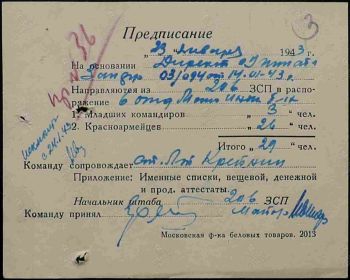 3
Предписание
"23" января 1943 г.
На основании Директ
03/094 от 14.01.43 г.
Направляются из 206 ЗСП в распо-
ряжение 6 отд
1. Младших командиров 3 чел.
2. Красноармейцев 26 чел.
Итого 29 чел.
Команду сопровождает ст. л-т
Приложение: Именные списки, вещевой, денежной
и прод. аттестаты.
Начальник штаба 206 ЗСП
Команду принял майор
Московская ф-ка беловых товаров. 2013
пр № 36
с 24.1.43